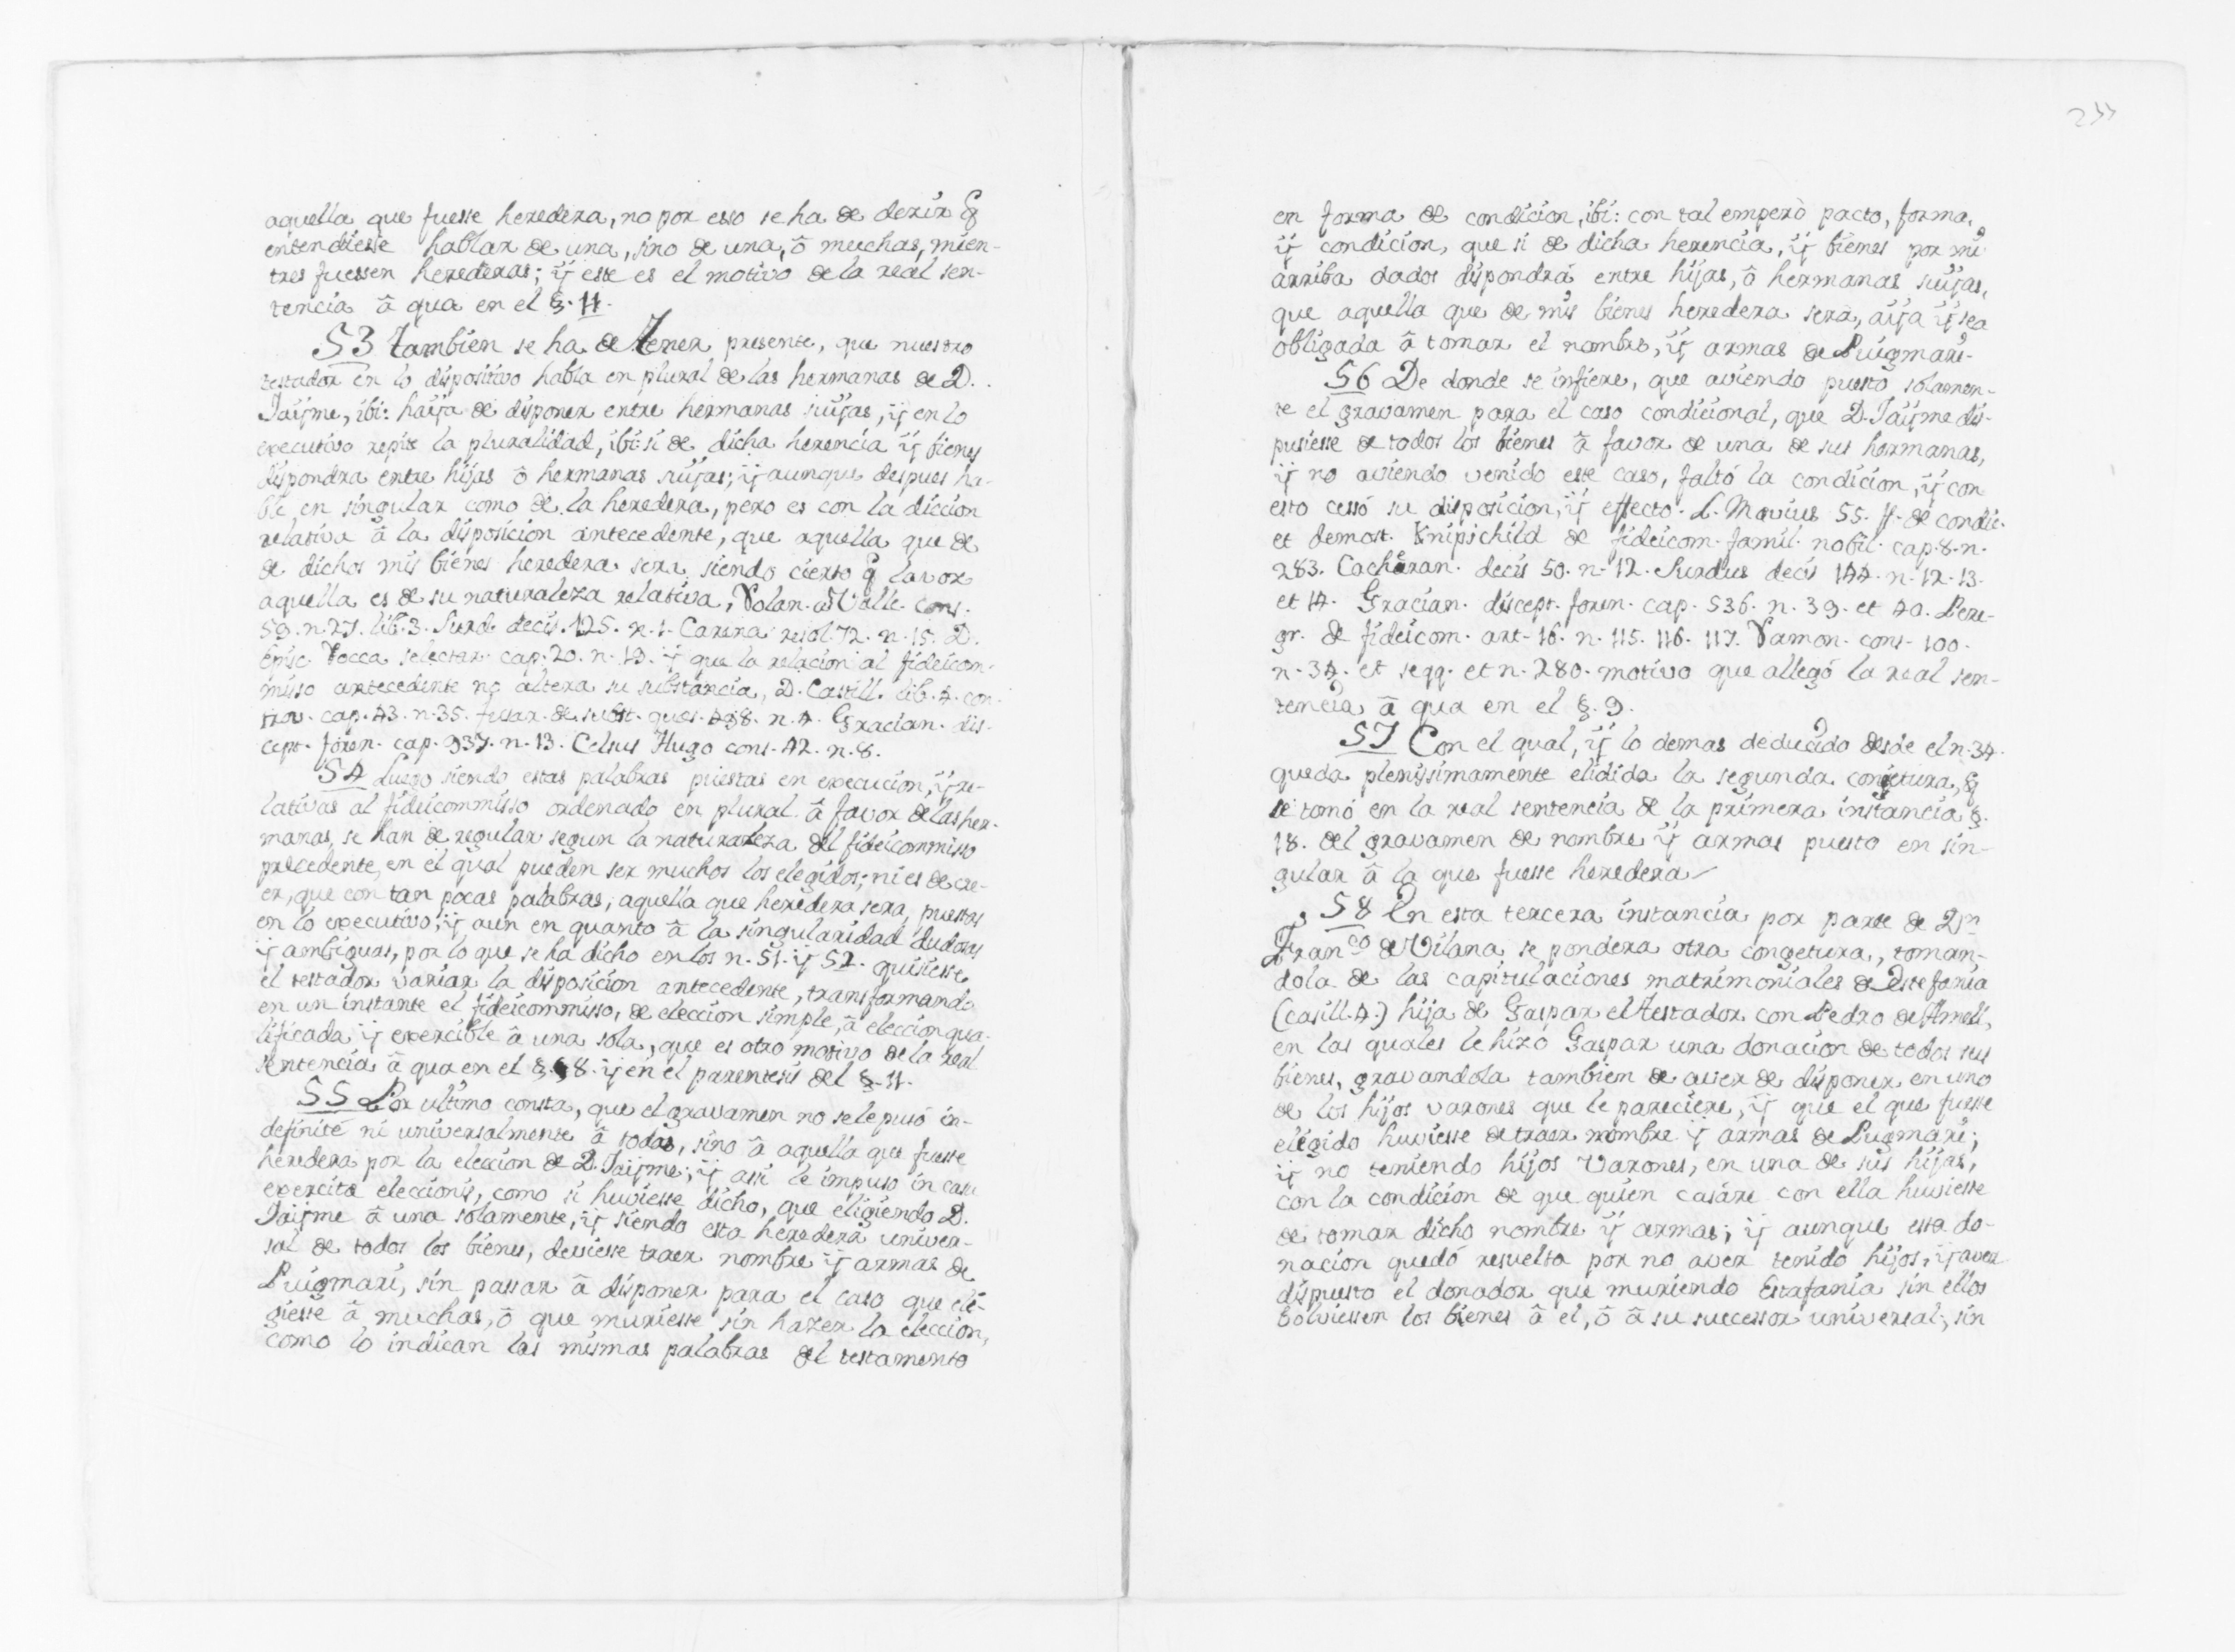 aquella que fuesse heredera, no por esso se ha de dezir q̃
entendiesse hablar de una, sino de una, ô muchas, mien-
tres fuessen herederas; ÿ este es el motivo de la real sen-
tencia â qua en el §. 11.
53 Tambien se ha de tener presente, que nuestro
testador en lo dispositivo habla en plural de las hermanas de D.
Jaÿme, ibi: haÿa de disponer entre hermanas suÿas, ÿ en lo
executivo repite la pluralidad, ibi: si de dicha herencia ÿ bienes
dispondra entre hijas ô hermanas suÿas; ÿ aunque despues ha-
ble en singular como de la heredera, pero es con la diccion
relativa â la disposicion antecedente, que aquella que de
de dichos mis bienes heredera sera, siendo cierto q̃ la vox
aquella es de su naturaleza relativa, Volan. à Valle. cons.
59. n. 27. lib. 3. Surd. decis. 125. n. 1. Carena resol. 72. n. 15. D.
Episc. Rocca selectar. cap. 20. n. 19. ÿ que la relacion al fideicom-
misso antecedente no altera su substancia, D. Castill. lib. 4. con-
trov. cap. 43. n. 35. fusar. de subst. ques. 498. n. 4. Gracian. dis-
cept. foren. cap. 937. n. 13. Celsus Hugo cons. 42. n. 8.
54 Luego siendo estas palabras puestas en execucion, ÿ re-
lativas al fideicommisso ordenado en plural â favor de las her-
manas, se han de regular segun la naturaleza del fideicommisso
precedente, en el qual pueden ser muchos los elegidos; ni es de cre-
er, que con tan pocas palabras, aquella que heredera sera, puestas
en lo executivo, ÿ aun en quanto â la singularidad dudosas
ÿ ambiguas, por lo que se ha dicho en los n. 51. ÿ 52. quisiesse
el testador variar la disposicion antecedente, transformando
en un instante el fideicommisso, de eleccion simple, â eleccion qua-
lificada, ÿ exercible â una sola, que es otro motivo de la real
sentencia â qua en el §. 8. ÿ en el parentesis del §. 11.
55 Por ultimo consta, que el gravamen no se le pusó in-
definité ni universalmente â todas, sino â aquella que fuesse
heredera por la eleccion de D. Jaÿme; ÿ assi le impuso in casu
exercitæ eleccionis, como si huviesse dicho, que eligiendo D.
Jaÿme â una solamente, ÿ siendo esta heredera univer-
sal de todos los bienes, deviesse traer nombre ÿ armas de
Puigmari, sin passar â disponer para el caso que eli-
giesse â muchas, ô que muriesse sin hazer la eleccion,
como lo indican las mismas palabras del testamento
en forma de condicion, ibi: con tal emperò pacto, forma,
ÿ condicion, que si de dicha herencia, ÿ bienes por mi
arriba dados dispondrá entre hijas, ô hermanas suÿas,
que aquella que de mis bienes heredera será, aÿa ÿ sea
obligada â tomar el nombre, ÿ armas de Puigmari.
56 De donde se infiere, que aviendo puesto solamen-
te el gravamen para el caso condicional, que D. Jaÿme dis-
pusiesse de todos los bienes â favor de una de sus hermanas,
ÿ no aviendo venido este caso, faltó la condicion, ÿ con
esto cessó su disposicion, ÿ effecto. L. Mævius 55. ff. de condic.
et demost. Knipschild de fideicom. famil. nobil. cap. 8. n.
283. Cacheran. decis 50. n. 12. Surdus decis 144. n. 12. 13.
et 14. Gracian. discept. foren. cap. 536. n. 39. et 40. Pere-
gr. de fideicom. art. 16. n. 115. 116. 117. Ramon. cons. 100.
n. 34. et seqq. et n. 280. motivo que allegó la real sen-
tencia â qua en el §. 9.
57 Con el qual, ÿ lo demas deducido desde el n. 34.
queda plenissimamente elidida la segunda conjetura, q̃
se tomó en la real sentencia de la primera instancia §.
18. del gravamen de nombre ÿ armas puesto en sin-
gular â la que fuesse heredera
58 En esta tercera instancia por parte de Dn.
Franco. de Vilana se pondera otra congetura, toman-
dola de las capitulaciones matrimoniales de Estefania
(casill. 4.) hija de Gaspar el Testador con Pedro de Ameli,
en las quales le hizo Gaspar una donacion de todos sus
bienes, gravandola tambien de aver de disponer en uno
de los hijos varones que le pareciere, ÿ que el que fuesse
elegido huviesse de traer nombre ÿ armas de Pugmari;
ÿ no teniendo hijos varones, en una de sus hijas,
con la condicion de que quien casáre con ella huviesse
de tomar dicho nombre ÿ armas; ÿ aunque esta do-
nacion quedó resuelta por no aver tenido hijos, ÿ aver
dispuesto el donador que muriendo Estafania sin ellos
bolviessen los bienes â el, ô â su successor universal, sin